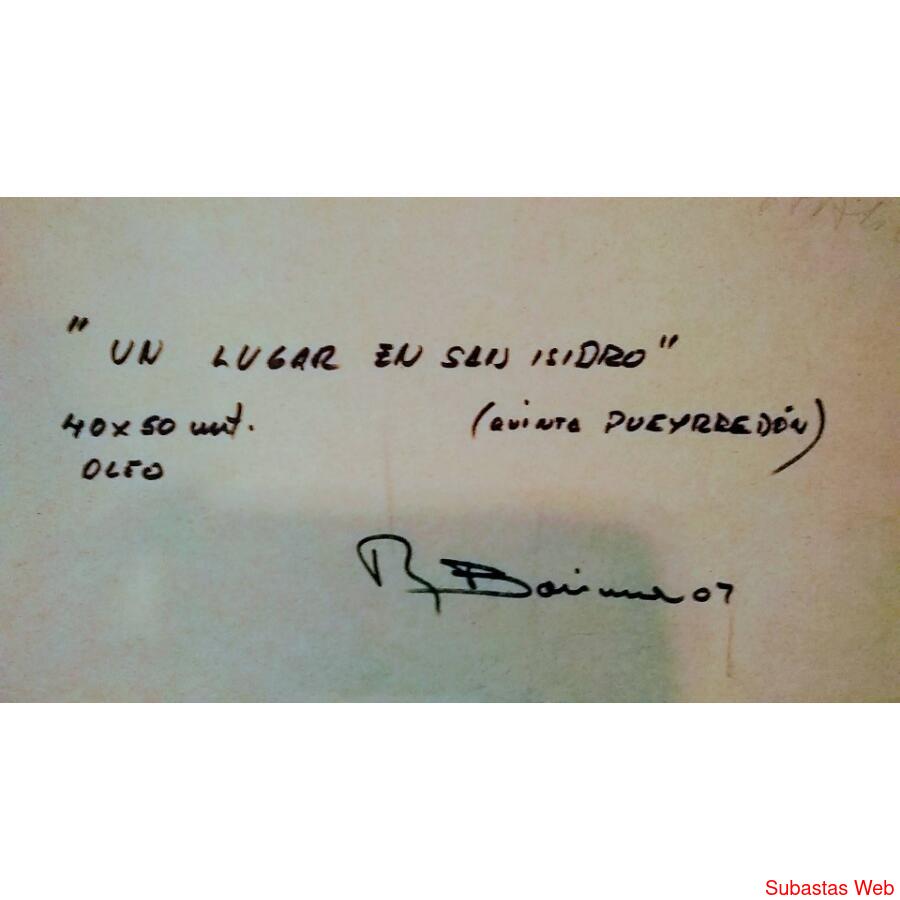 " UN LUGAR EN SAN ISIDRO"
40x50 cmt. (QUINTA PUEYRREDÓN)
OLEO
07
Subastas Web